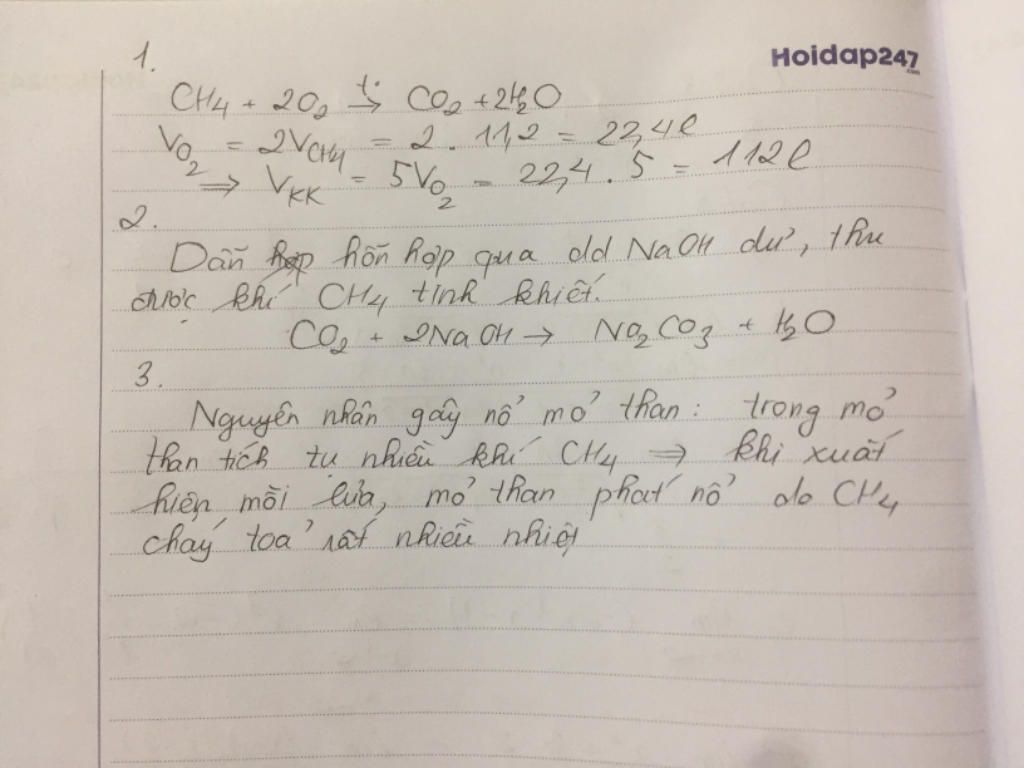 1.
Hoidap247
.com
CH4 + 2O2 t°→ CO2 + 2H2O
VO2 = 2VCH4 = 2 . 11,2 = 22,4l
⇒ VKK = 5VO2 = 22,4 . 5 = 112l
2.
Dẫn hỗn hợp qua dd NaOH dư, thu
được khí CH4 tinh khiết.
CO2 + 2NaOH → Na2CO3 + H2O
3.
Nguyên nhân gây nổ mỏ than: trong mỏ
than tích tụ nhiều khí CH4 ⇒ khi xuất
hiện mồi lửa, mỏ than phát nổ do CH4
cháy toả rất nhiều nhiệt